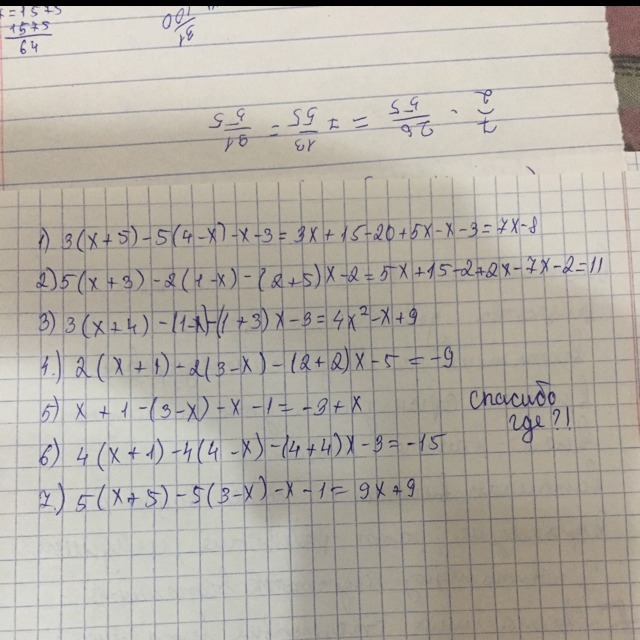 x=1575
1575
64
91/100
7/2 · 26/55 = 7 13/55 = 91/55
1) 3(x+5)-5(4-x)-x-3=3x+15-20+5x-x-3=7x-8
2) 5(x+3)-2(1-x)-(2+5)x-2=5x+15-2+2x-7x-2=11
3) 3(x+4)-(1-x)-(1+3)x-3=4x²-x+9
4.) 2(x+1)-2(3-x)-(2+2)x-5=-9
5) x+1-(3-x)-x-1=-3+x
6) 4(x+1)-4(4-x)-(4+4)x-3=-15
7.) 5(x+5)-5(3-x)-x-1=9x+9
спасибо
где?!